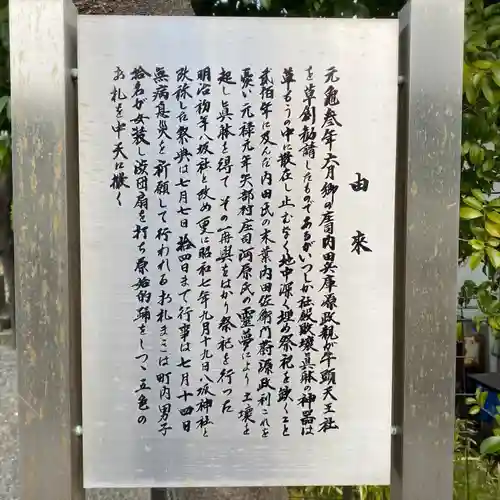 由来
元亀叁年六月郷の庄司内田兵庫源政親が牛頭天王社
を草創勧請したものであるがいつしか社殿破壊真躰の神器は
草もうの中に散在し止むなく地中深く埋め祭祀を欠くこと
貮佰年に及んだ内田氏の末葉内田佐衛門尉源政利これを
憂い元禄元年矢部村庄司河原氏の霊夢により土壌を
起し真躰を得て その再興をはかり祭祀を行った
明治初年八坂社と改め 更に昭和七年九月十九日八坂神社と
改称した祭典は七月七日 拾四日まで行事は七月十四日
無病息災を祈願して行われるお札まきは町内男子
拾名が女装し渋団扇を打ち原始的踊をしつゝ五色の
お札を中天に撒く